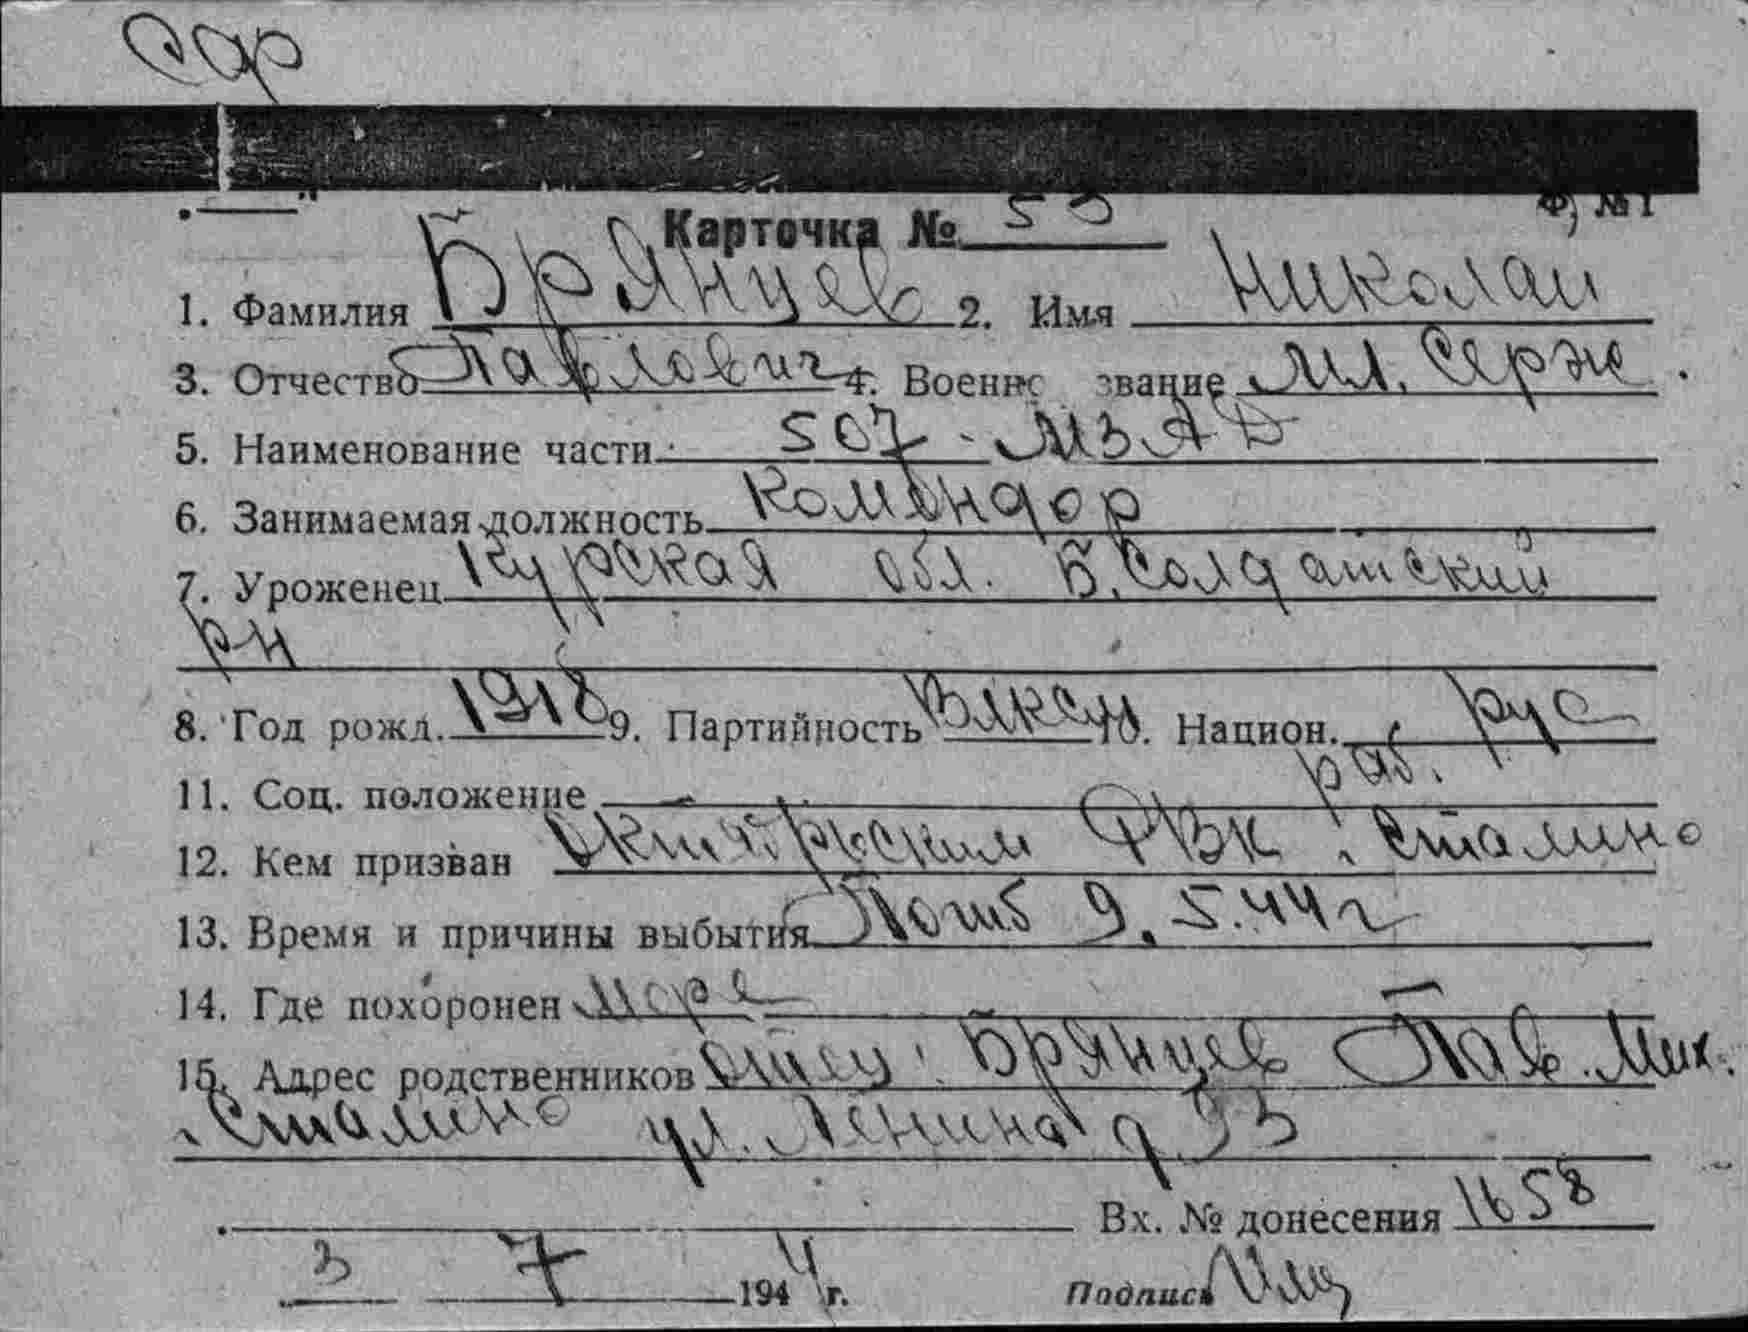 Ф, № 1
Карточка № 53
1. Фамилия Брянцев 2. Имя Николай
3. Отчество Павлович 4. Военн звание мл. Серж.
5. Наименование части 507-МЗАД
6. Занимаемая должность Комендор
7. Уроженец Курская обл. Б.Солдатский
рн
8. Год рожд. 1918 9. Партийность ВЛКСМ 10. Национ. рус
11. Соц. положение раб.
12. Кем призван Октябрьским РВК г. Сталино
13. Время и причины выбытия Погиб 9.5.44 г
14. Где похоронен Море
15. Адрес родственников отец: Брянцев Пав. Мих.
г. Сталино ул. Ленина д 93
Вх. № донесения 1658
3 7 1944 г. Подпись